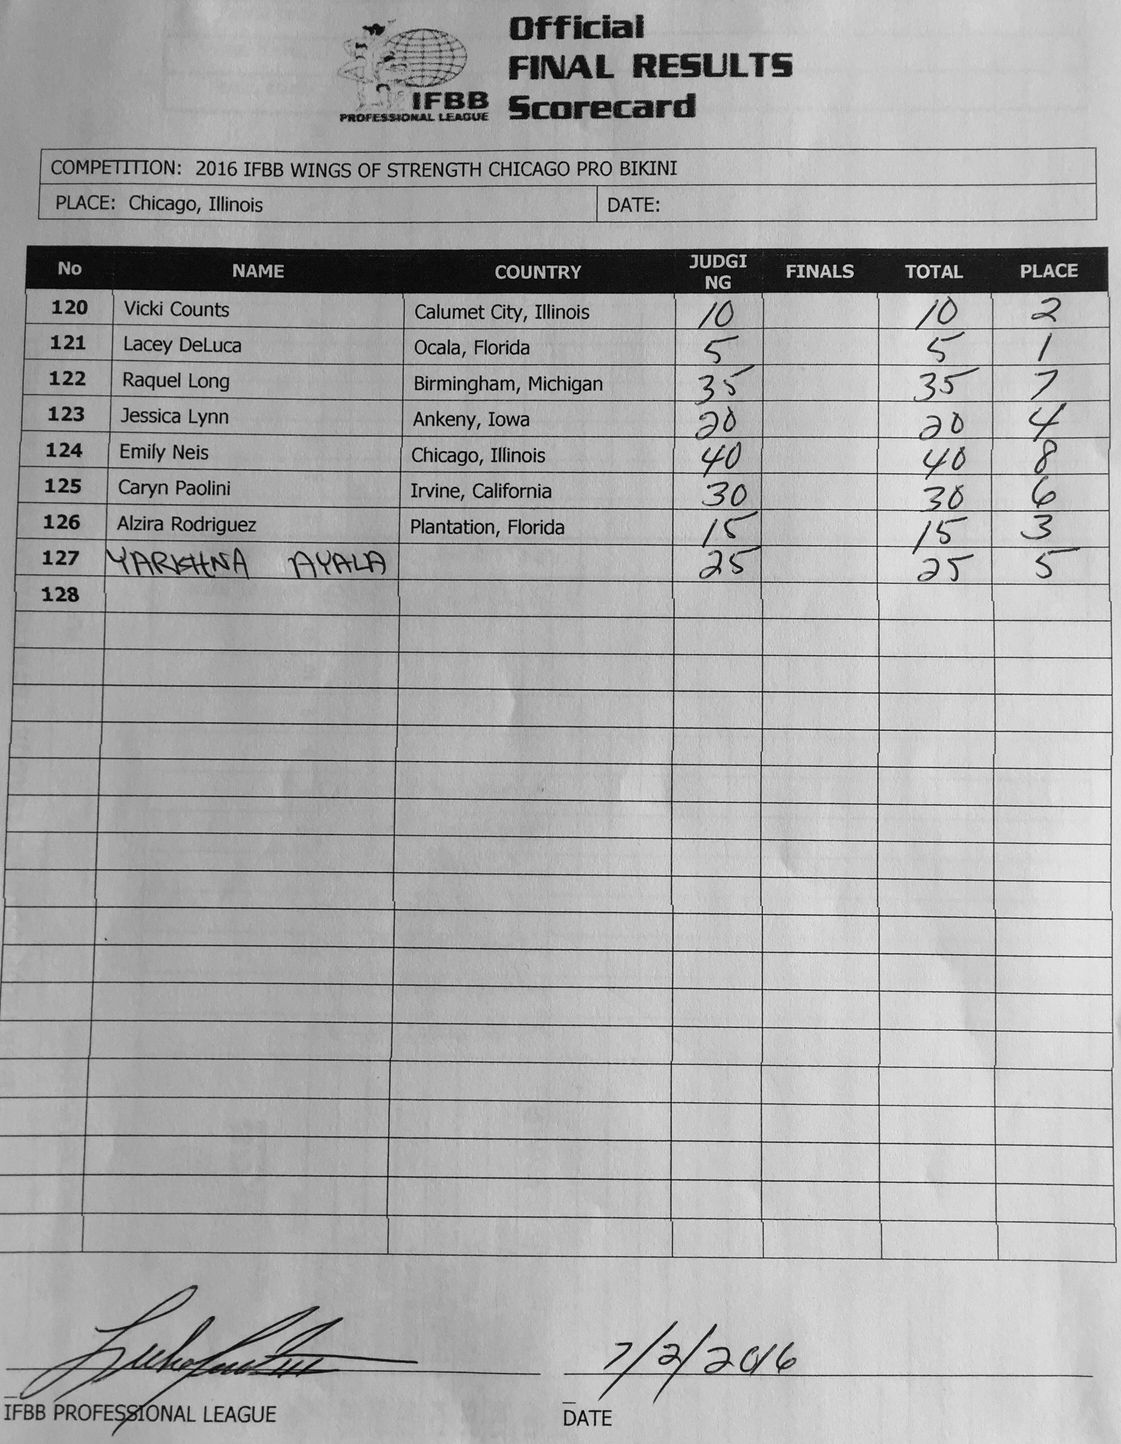 Official
FINAL RESULTS
Scorecard
IFBB
PROFESSIONAL LEAGUE
COMPETITION: 2016 IFBB WINGS OF STRENGTH CHICAGO PRO BIKINI
PLACE: Chicago, Illinois DATE:
No NAME COUNTRY JUDGING FINALS TOTAL PLACE
120 Vicki Counts Calumet City, Illinois 10 10 2
121 Lacey DeLuca Ocala, Florida 5 5 1
122 Raquel Long Birmingham, Michigan 35 35 7
123 Jessica Lynn Ankeny, Iowa 20 20 4
124 Emily Neis Chicago, Illinois 40 40 8
125 Caryn Paolini Irvine, California 30 30 6
126 Alzira Rodriguez Plantation, Florida 15 15 3
127 YARISHNA AYALA 25 25 5
128
7/2/2016
IFBB PROFESSIONAL LEAGUE DATE